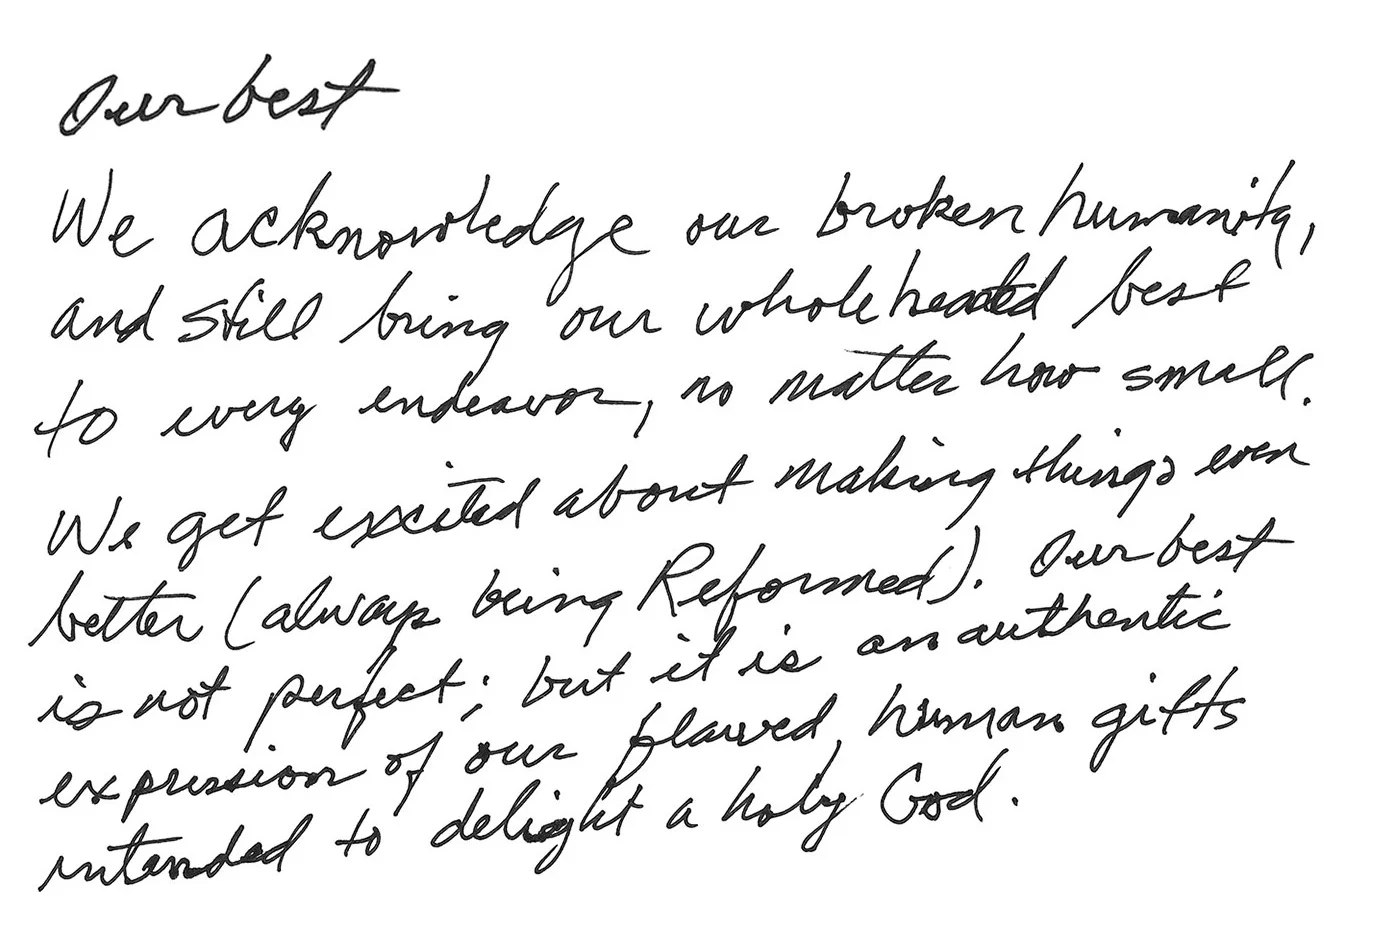 Our best
We acknowledge our broken humanity,
and still bring our wholehearted best
to every endeavor, no matter how small.
We get excited about making things even
better (always being Reformed). Our best
is not perfect; but it is an authentic
expression of our flawed, human gifts
intended to delight a holy God.